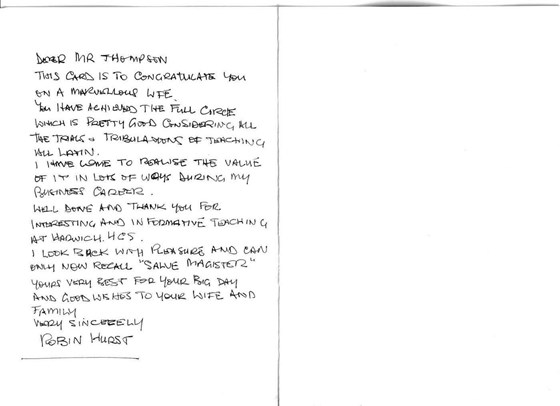 DEAR MR THOMPSON
THIS CARD IS TO CONGRATULATE YOU
ON A MARVELLOUS LIFE.
YOU HAVE ACHIEVED THE FULL CIRCLE
WHICH IS PRETTY GOOD CONSIDERING ALL
THE TRIALS + TRIBULATIONS OF TEACHING
ALL LATIN.
I HAVE COME TO REALISE THE VALUE
OF IT IN LOTS OF WAYS DURING MY
BUSINESS CAREER.
WELL DONE AND THANK YOU FOR
INTERESTING AND INFORMATIVE TEACHING
AT HARWICH. HCS.
I LOOK BACK WITH PLEASURE AND CAN
ONLY NOW RECALL "SALVE MAGISTER"
YOURS VERY BEST FOR YOUR BIG DAY
AND GOOD WISHES TO YOUR WIFE AND
FAMILY
VERY SINCERELY
ROBIN HURST